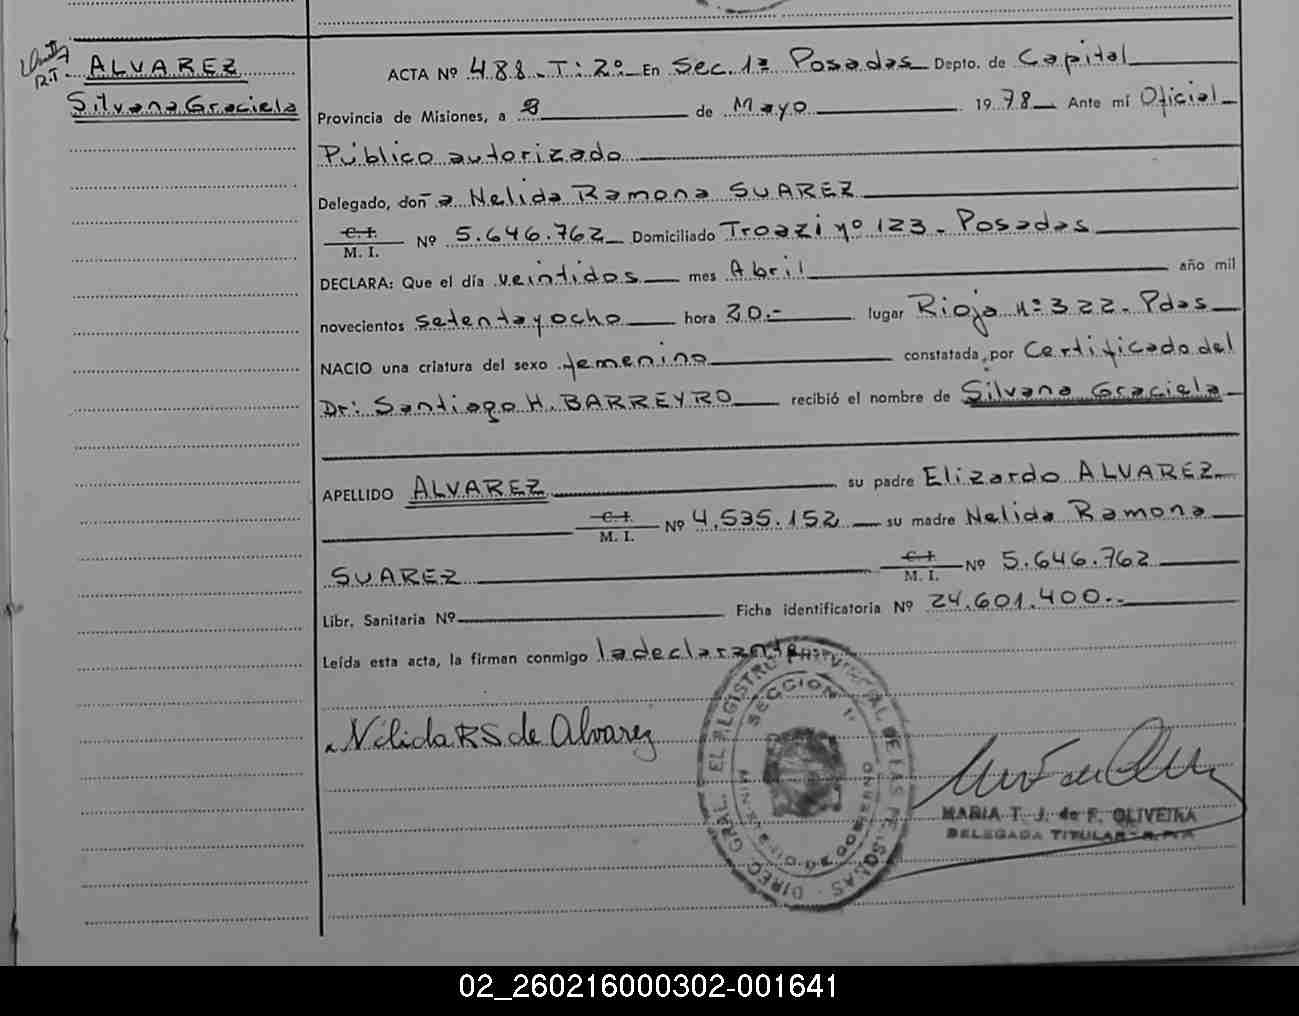 ALVAREZ
Silvana Graciela
ACTA Nº 488. T: 2º En Sec. 1ª Posadas Depto. de Capital
Provincia de Misiones, a 8 de Mayo 1978 Ante mí Oficial
Público autorizado
Delegado, don a Nelida Ramona SUAREZ
C. I.
M. I. Nº 5.646.762 Domiciliado Troazi nº 123. Posadas
DECLARA: Que el día veintidos mes Abril año mil
novecientos setenta y ocho hora 20.- lugar Rioja nº 322. Pdas
NACIO una criatura del sexo femenino constatada por Certificado del
Dr: Santiago H. BARREYRO recibió el nombre de Silvana Graciela
APELLIDO ALVAREZ su padre Elizardo ALVAREZ
C. I.
M. I. Nº 4.535.152 su madre Nelida Ramona
SUAREZ C. I.
M. I. Nº 5.646.762
Libr. Sanitaria Nº Ficha identificatoria Nº 24.601.400.-
Leída esta acta, la firman conmigo la declarante.
Nelida RS de Alvarez
DIREC. GRAL. EL REGISTRO PROVINCIAL DE LAS PERSONAS
SECCION 1ª
MARIA T. J. de F. OLIVEIRA
DELEGADA TITULAR
02_260216000302-001641